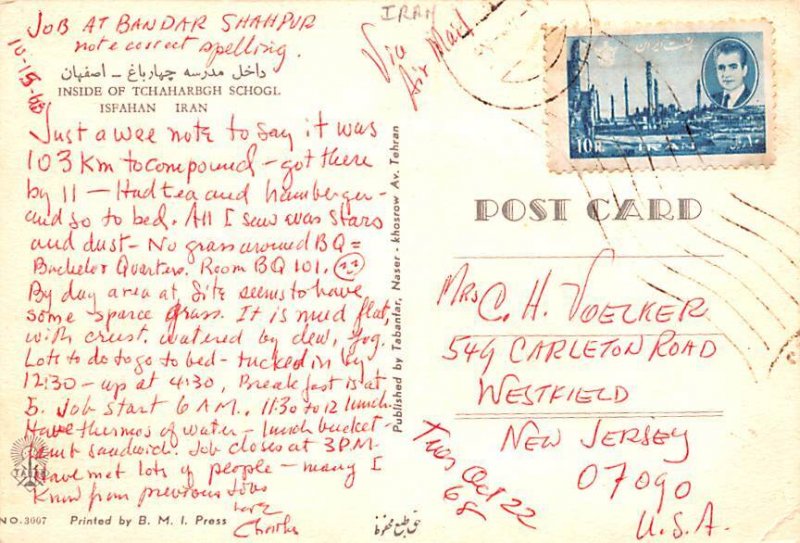 JOB AT BANDAR SHAHPUR
note correct spelling.
10-15-68
داخل مدرسه چهارباغ - اصفهان
INSIDE OF TCHAHARBGH SCHOGL
ISFAHAN IRAN
Just a wee note to say it was
103 Km to compound - got there
by 11 - Had tea and hamburger -
and so to bed. All I saw was stars
and dust - No grass around BQ =
Bachelor Quarters. Room BQ 101.
By day area at Site seems to have
some sparce grass. It is mud flat,
with crust. watered by dew, fog.
Lots to do to go to bed - tucked in by
12:30 - up at 4:30, Breakfast is at
5. Job Start 6 A.M., 11:30 to 12 lunch.
Have thermos of water - lunch bucket -
sandwich. Job closes at 3 PM.
Have met lots of people - many I
Know from previous Jobs
Love
Charles
NO. 3007 Printed by B. M. I. Press
Published by Tabanfar, Naser - khosrow Av. Tehran
حق طبع محفوظ
IRAN
Via
Air Mail
پست ایران
10R
IRAN
POST CARD
Mrs C. H. VOELKER
549 CARLETON ROAD
WESTFIELD
NEW JERSEY
07090
U.S.A.
Tues Oct 22
68